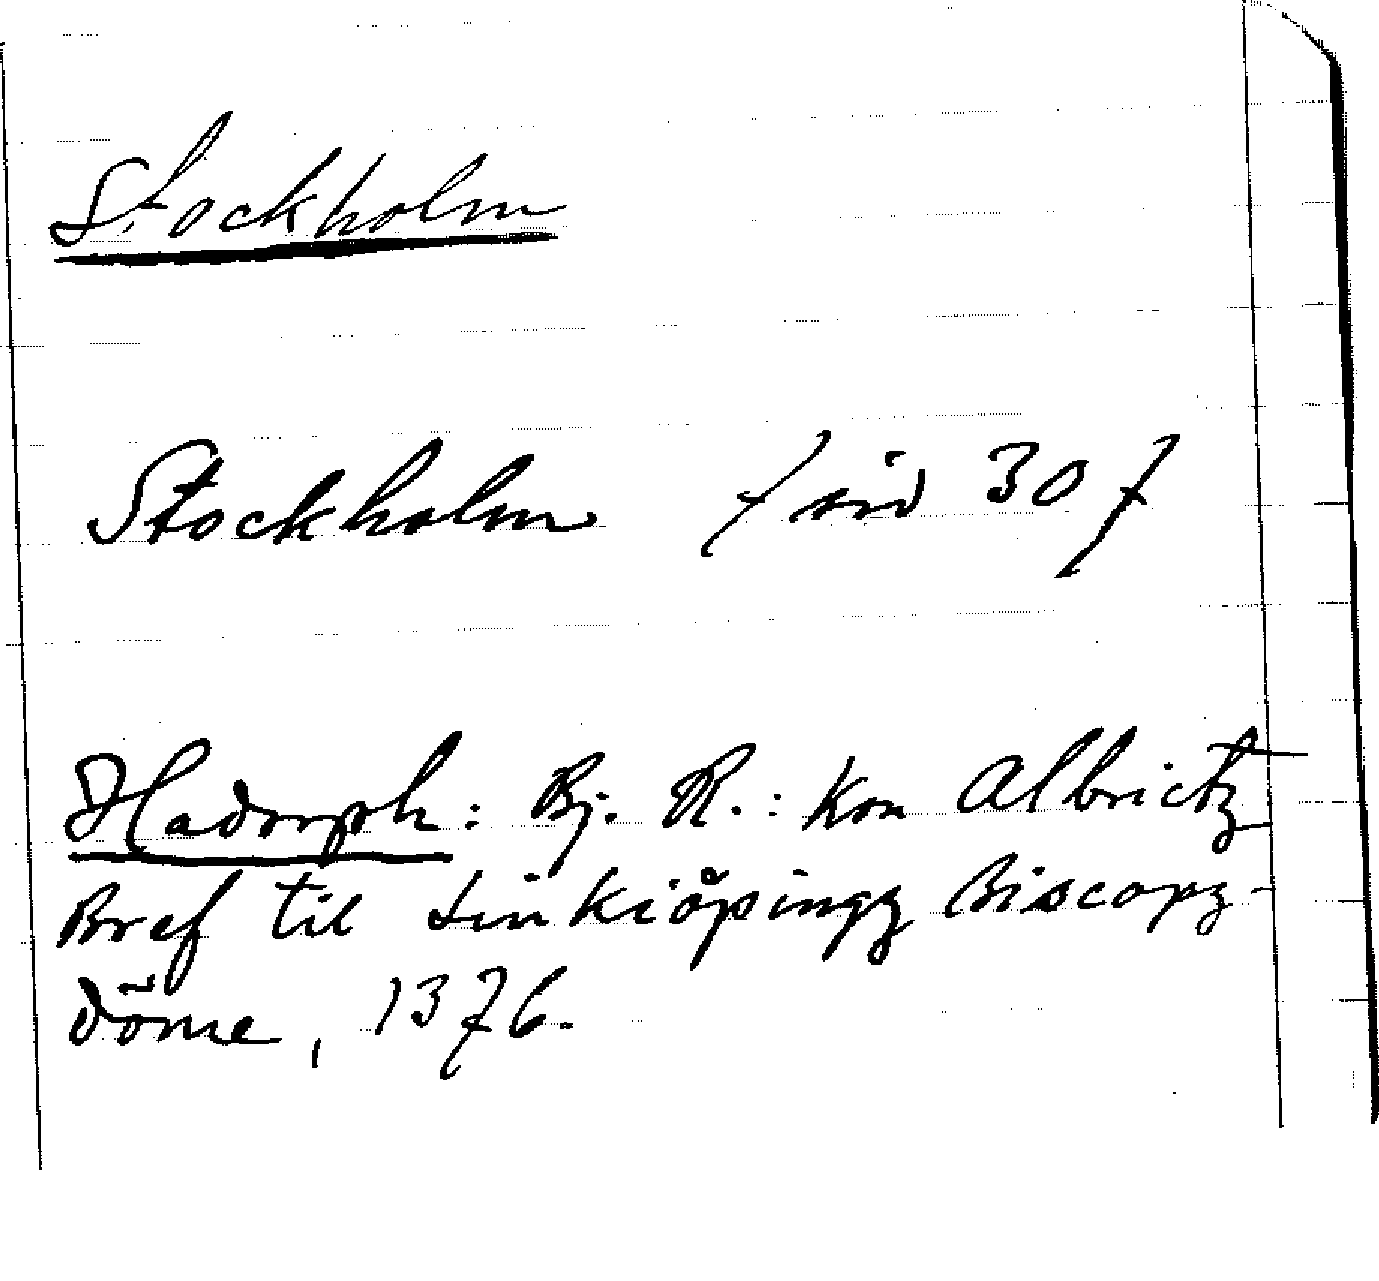 Stockholm
Stockholm / sid 30 /
Hadorph: Bj. R.: Kon Albrictz
Bref til Linkiöpingz Biscopz-
döme, 1376.